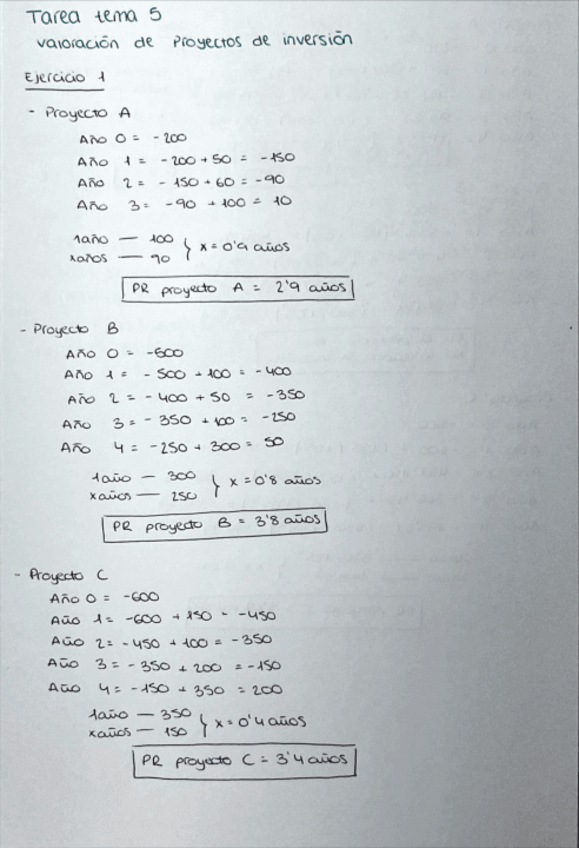 Tarea tema 5
Valoración de Proyectos de inversión
Ejercicio 1
- Proyecto A
Año 0 = -200
Año 1 = -200 + 50 = -150
Año 2 = -150 + 60 = -90
Año 3 = -90 + 100 = 10
1 año — 100
x años — 90 } x = 0'9 años
PR proyecto A = 2'9 años
- Proyecto B
Año 0 = -500
Año 1 = -500 + 100 = -400
Año 2 = -400 + 50 = -350
Año 3 = -350 + 100 = -250
Año 4 = -250 + 300 = 50
1 año — 300
x años — 250 } x = 0'8 años
PR proyecto B = 3'8 años
- Proyecto C
Año 0 = -600
Año 1 = -600 + 150 = -450
Año 2 = -450 + 100 = -350
Año 3 = -350 + 200 = -150
Año 4 = -150 + 350 = 200
1 año — 350
x años — 150 } x = 0'4 años
PR proyecto C = 3'4 años